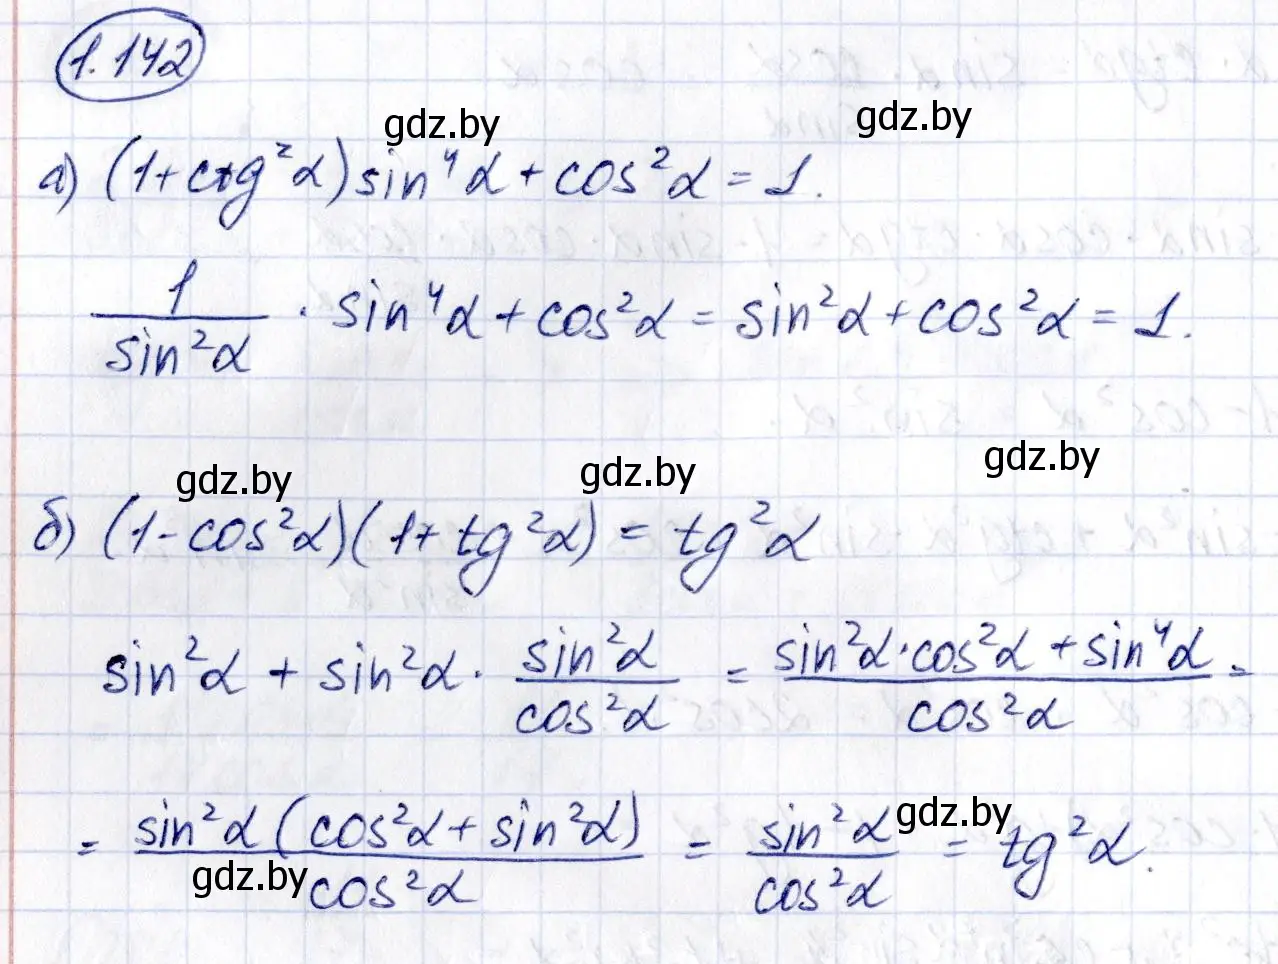 1.142
gdz.by gdz.by
а) (1+ctg²α)sin⁴α+cos²α=1.
1/sin²α · sin⁴α+cos²α=sin²α+cos²α=1.
gdz.by gdz.by gdz.by
б) (1-cos²α)(1+tg²α)=tg²α
sin²α + sin²α · sin²α/cos²α = (sin²α·cos²α+sin⁴α)/cos²α =
= sin²α(cos²α+sin²α)/cos²α = sin²α/cos²α = tg²α.
gdz.by gdz.by